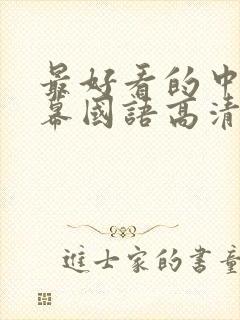 最好看的中
幕國語高清
進士家的書童